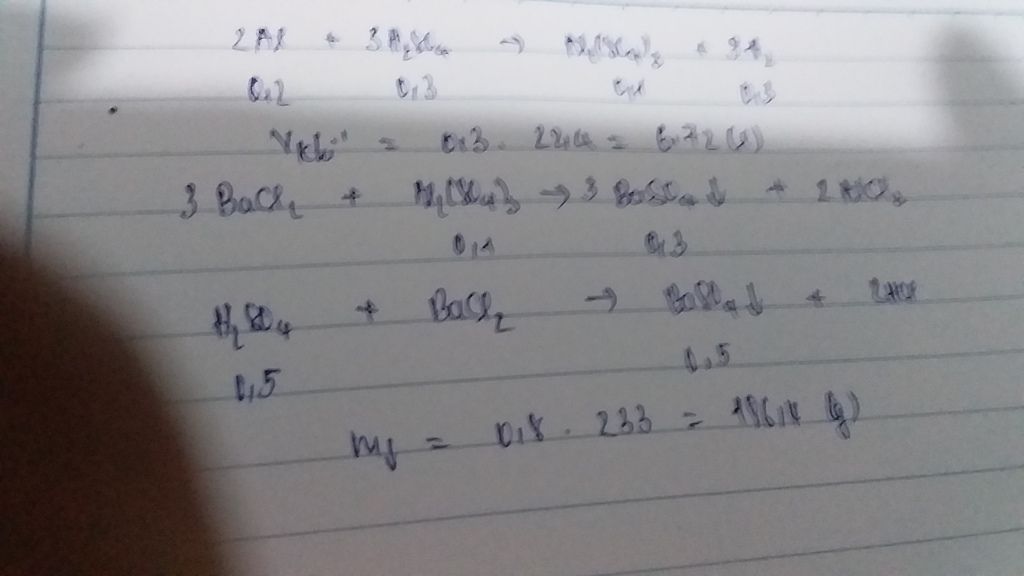 2Al + 3H₂SO₄ → Al₂(SO₄)₃ + 3H₂
0,2 0,3 0,1 0,3
V khí = 0,3 . 22,4 = 6.72 (l)
3 BaCl₂ + Al₂(SO₄)₃ → 3 BaSO₄↓ + 2AlCl₃
0,1 0,3
H₂SO₄ + BaCl₂ → BaSO₄↓ + 2HCl
0,5 0,5
m↓ = 0,8 . 233 = 186,4 (g)